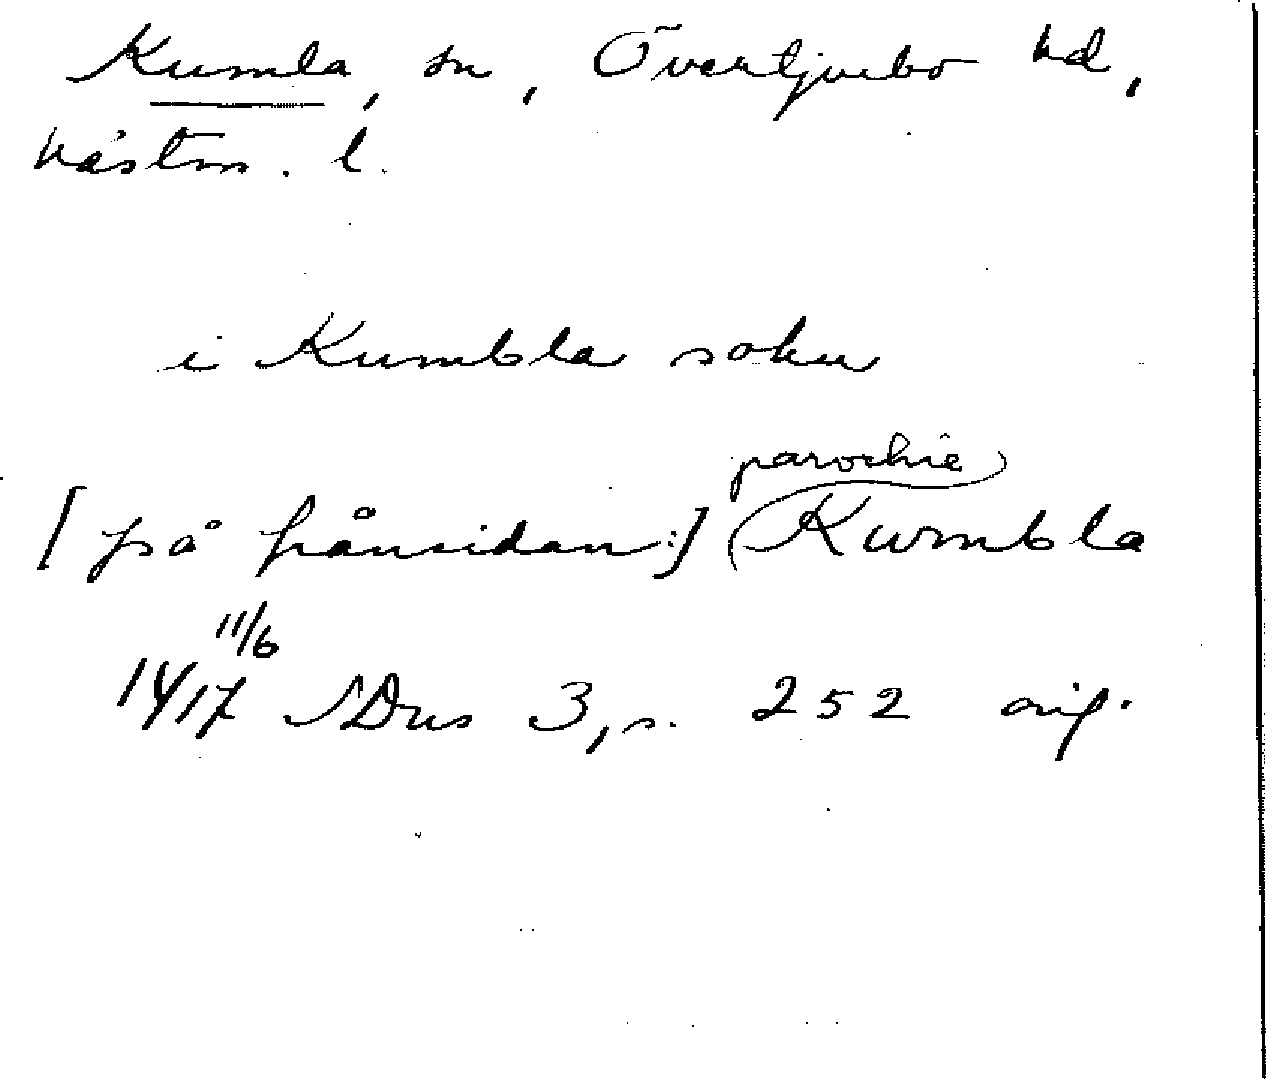 Kumla, sn, Övertjurbo hd,
Västm. l.
i Kumbla sokn
parochie
[på frånsidan:] Kumbla
11/6
1417 SDns 3, s. 252 orig.